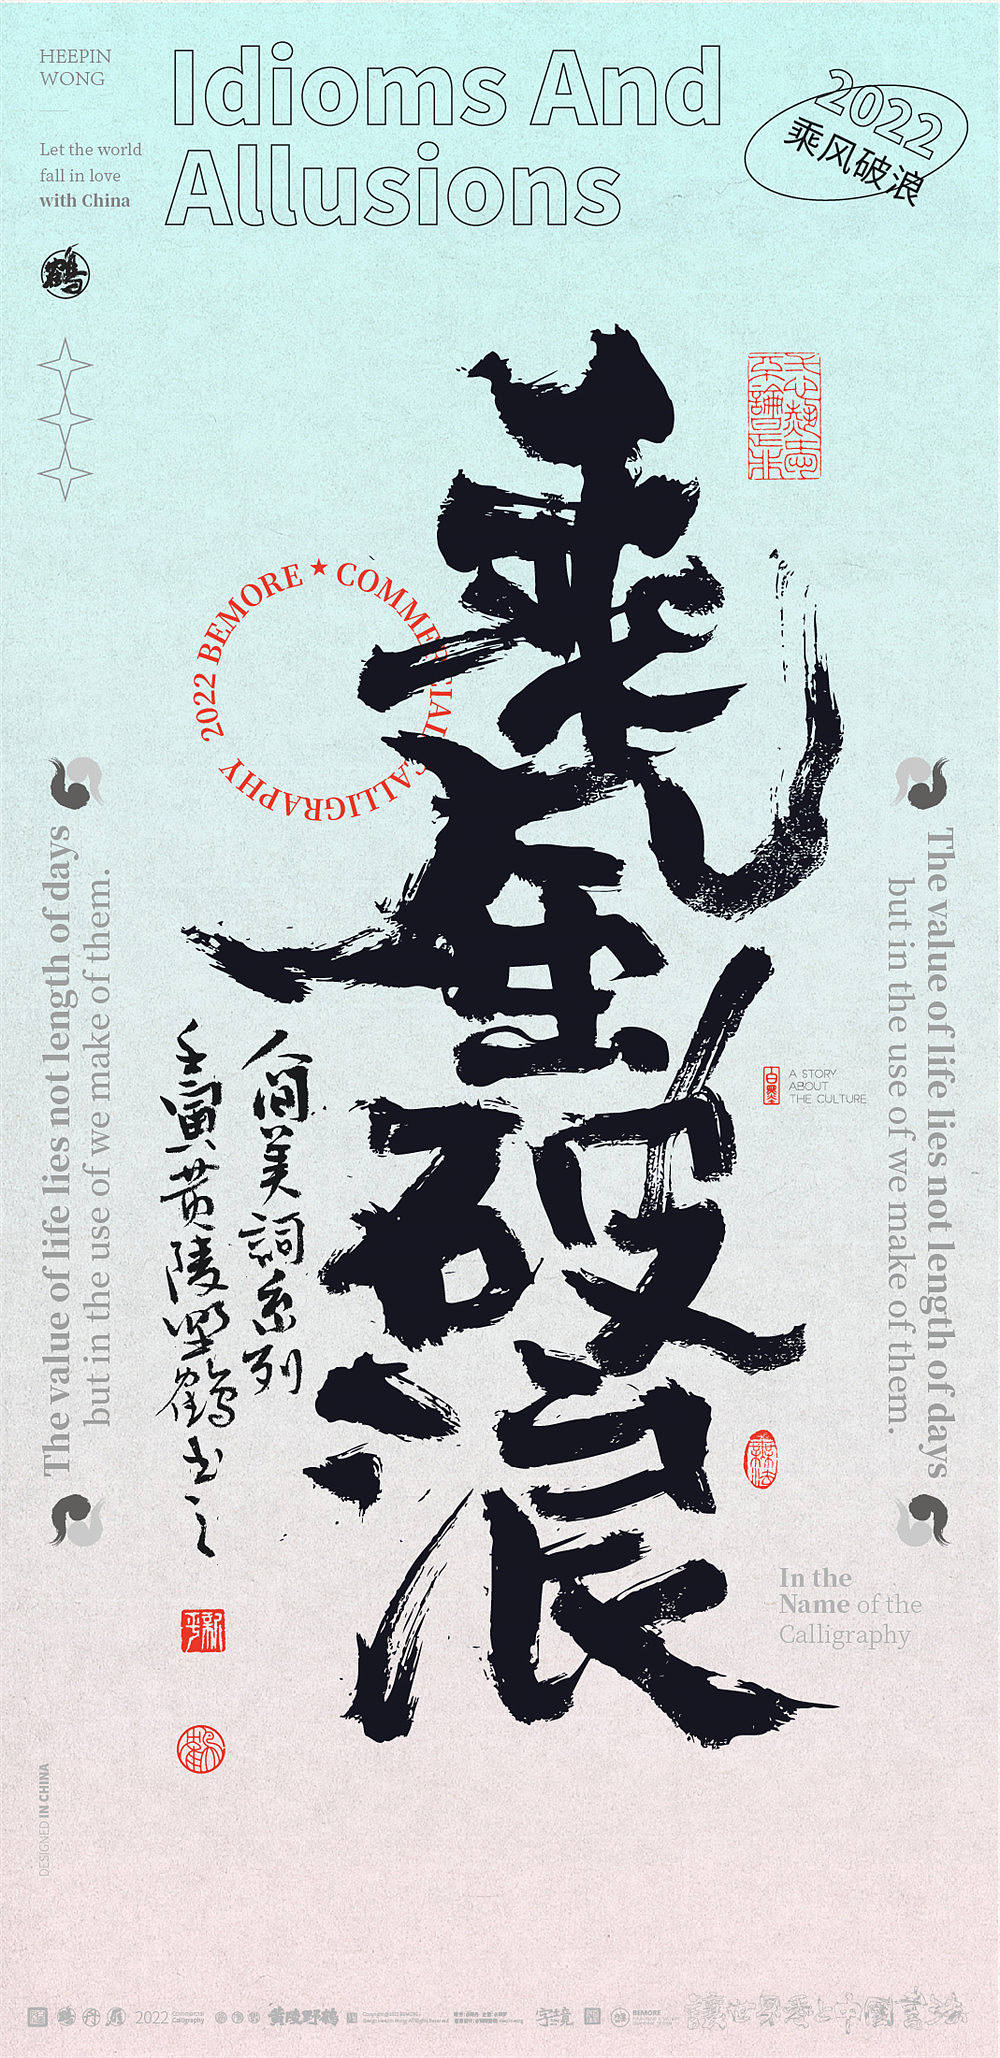 HEEPIN
WONG
Idioms And
Allusions
2022
乘风破浪
Let the world
fall in love
with China
鶴
2022 BEMORE ★ COMMERCIAL CALLIGRAPHY
乘風破浪
The value of life lies not length of days
but in the use of we make of them.
The value of life lies not length of days
but in the use of we make of them.
A STORY
ABOUT
THE CULTURE
人间美詞系列
壬寅黄陵野鶴书之
In the
Name of the
Calligraphy
DESIGNED IN CHINA
2022
Commercial
Calligraphy
黄陵野鹤
字境
BEMORE
讓世界愛上中國書法